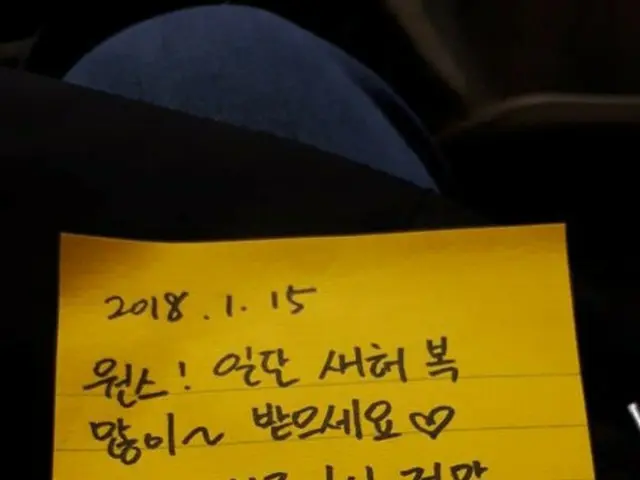 2018.1.15
원스! 일단 새해 복
많이~ 받으세요♡